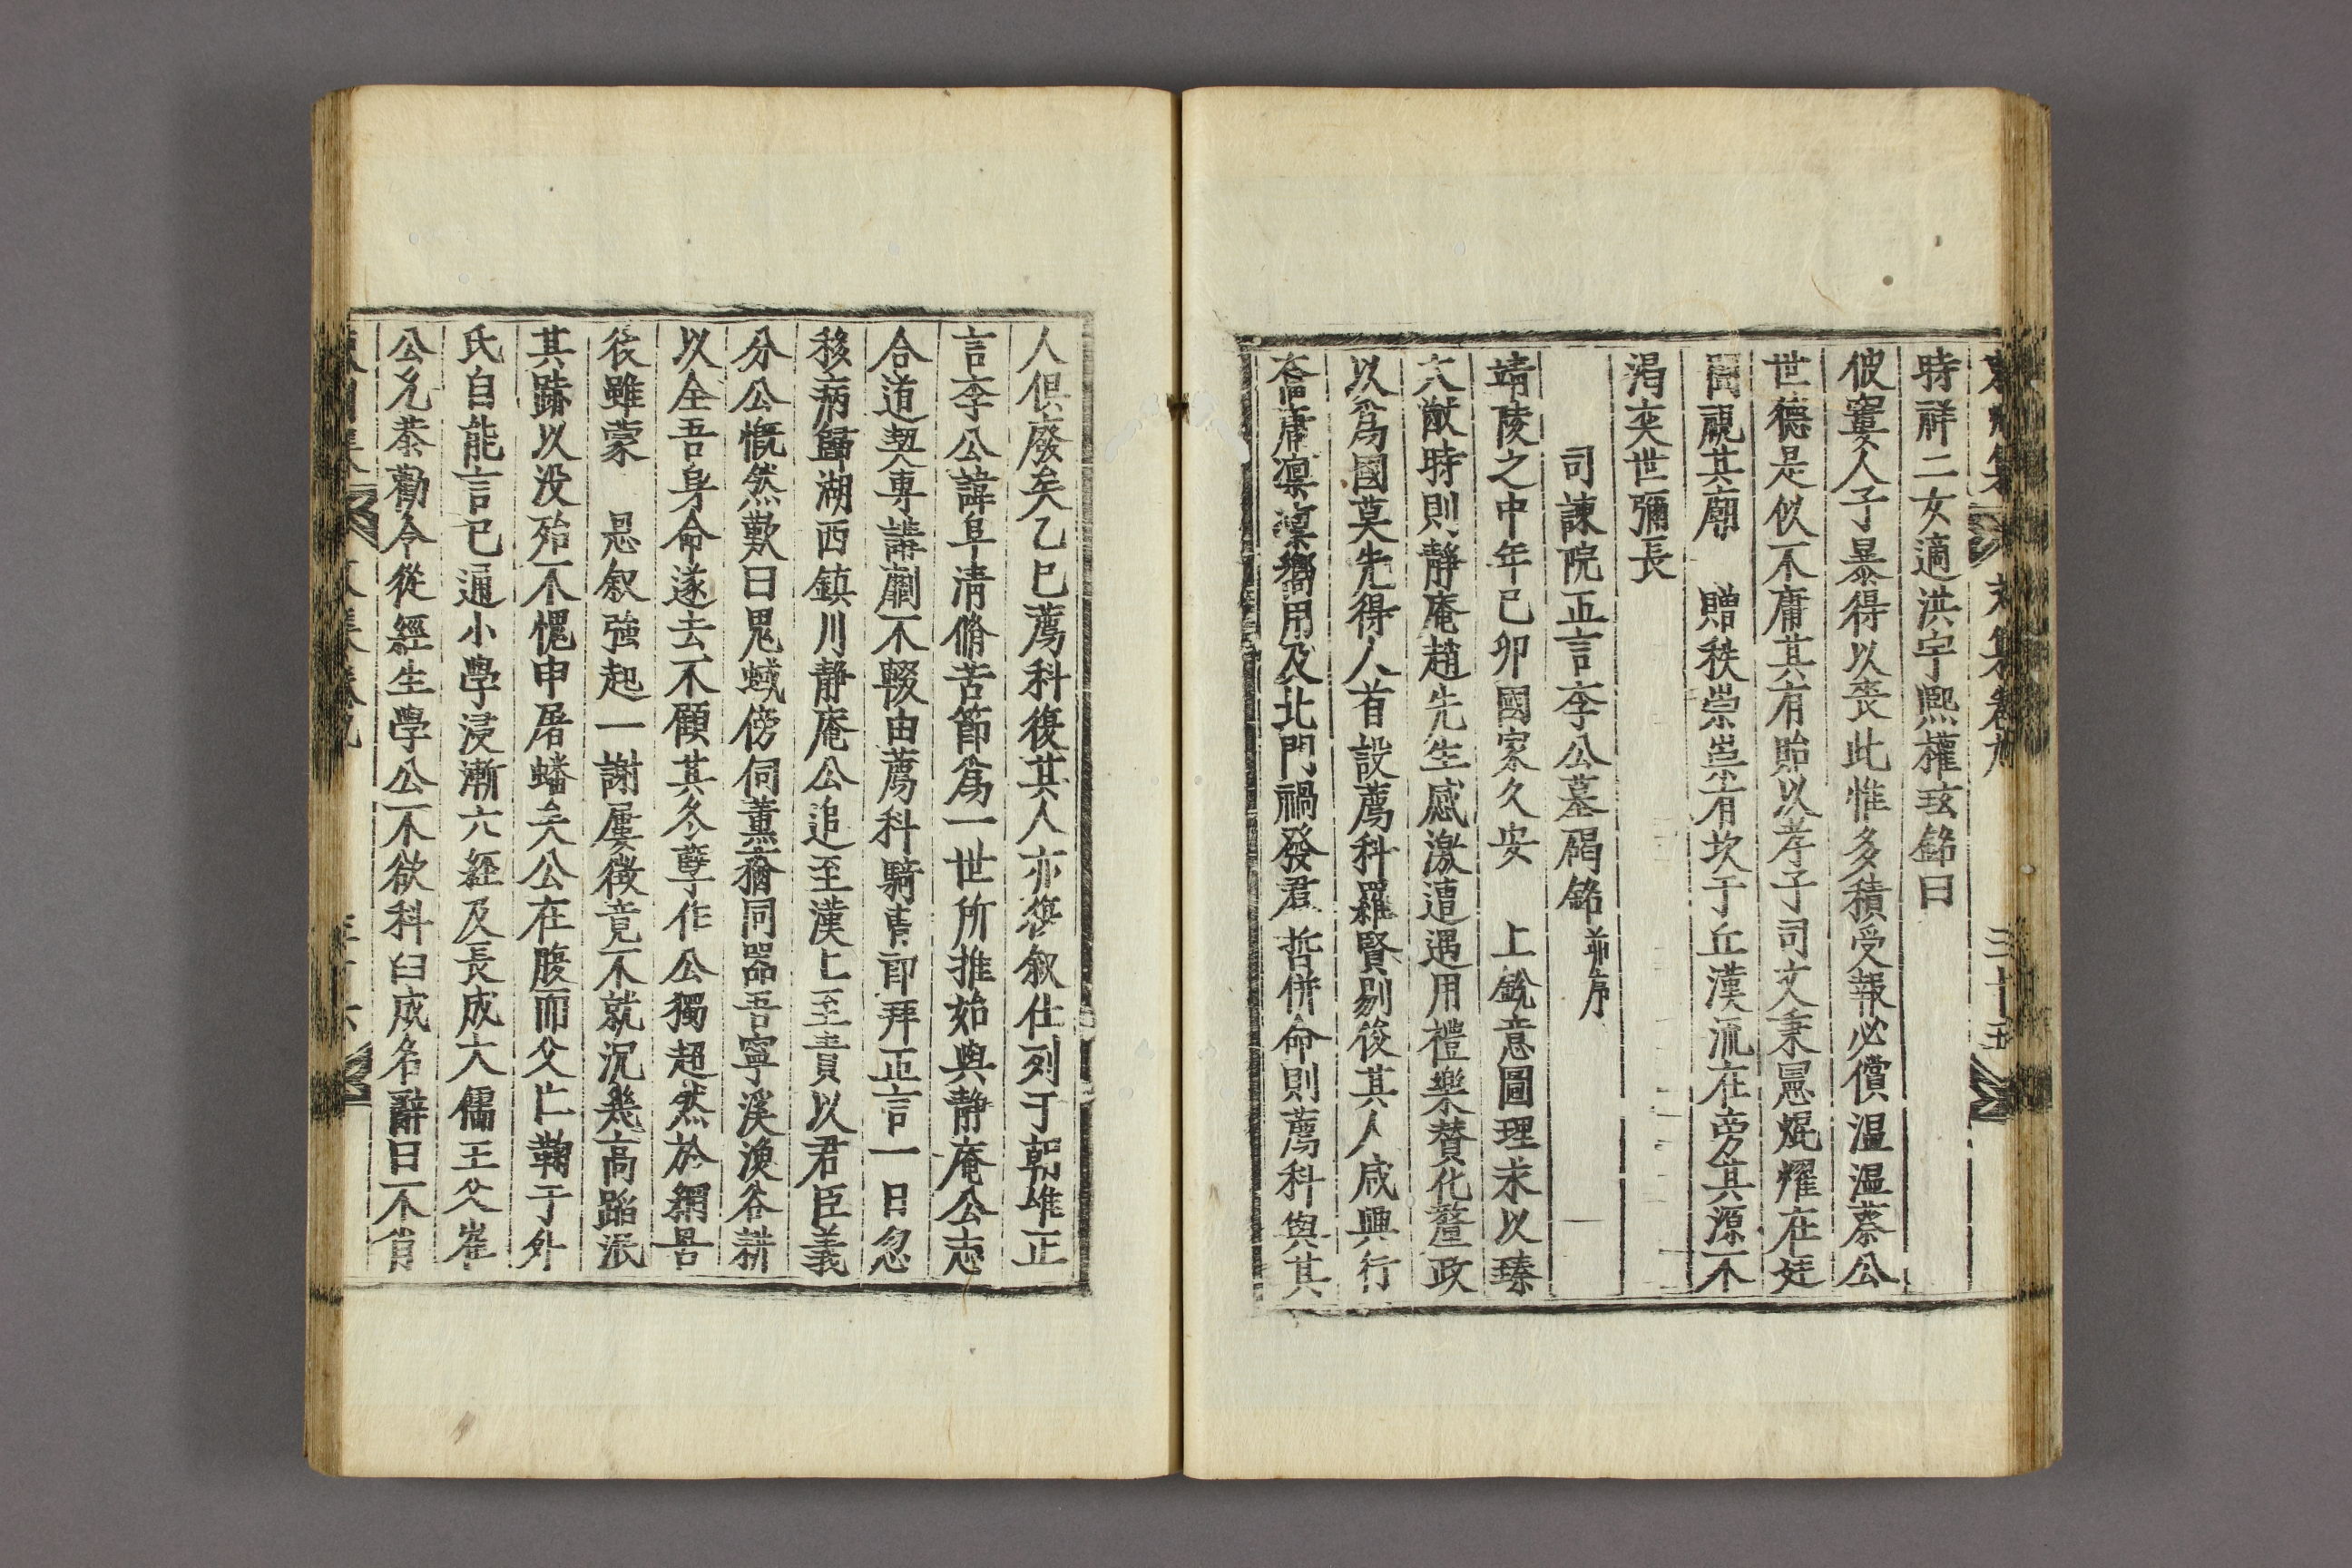 集 文集卷九 三十五
時祥二女適洪宇熙權玹銘曰
彼窶人子暴得以喪此惟多積受報必償溫溫蔡公
世德是似不庸其有貽以孝子司文秉憲焜燿在廷
爾視其廟 贈秩崇崇有坎于丘漢流在旁其源不
渴奕世彌長
司諫院正言李公墓碣銘 並序
靖陵之中年己卯國家久安 上銳意圖理求以臻
大猷時則靜庵趙先生感激遭遇用禮樂贊化釐政
以爲國莫先得人首設薦科羅賢剔後其人咸興行
奮庸凛凛嚮用及北門禍發君哲倂命則薦科與其
人俱廢矣乙巳薦科復其人亦復叙仕列于朝惟正
言李公諱阜淸脩苦節爲一世所推始與靜庵公志
合道契專講劘不輟由薦科騎曹郞拜正言一日忽
移病歸湖西鎭川靜庵公追至漢上至責以君臣義
分公慨然歎曰鬼蜮傍伺薰蕕同器吾寧溪漁谷耕
以全吾身命遂去不顧其冬孽作公獨超然於網罟
後雖蒙 恩叙強起一謝屢徵竟不就沉幾高蹈泯
其跡以沒殆不愧申屠蟠矣公在腹而父亡鞠于外
氏自能言已通小學浸漸六經及長成大儒王父崔
公允恭勸令從經生學公不欲科臼成名辭曰不肖